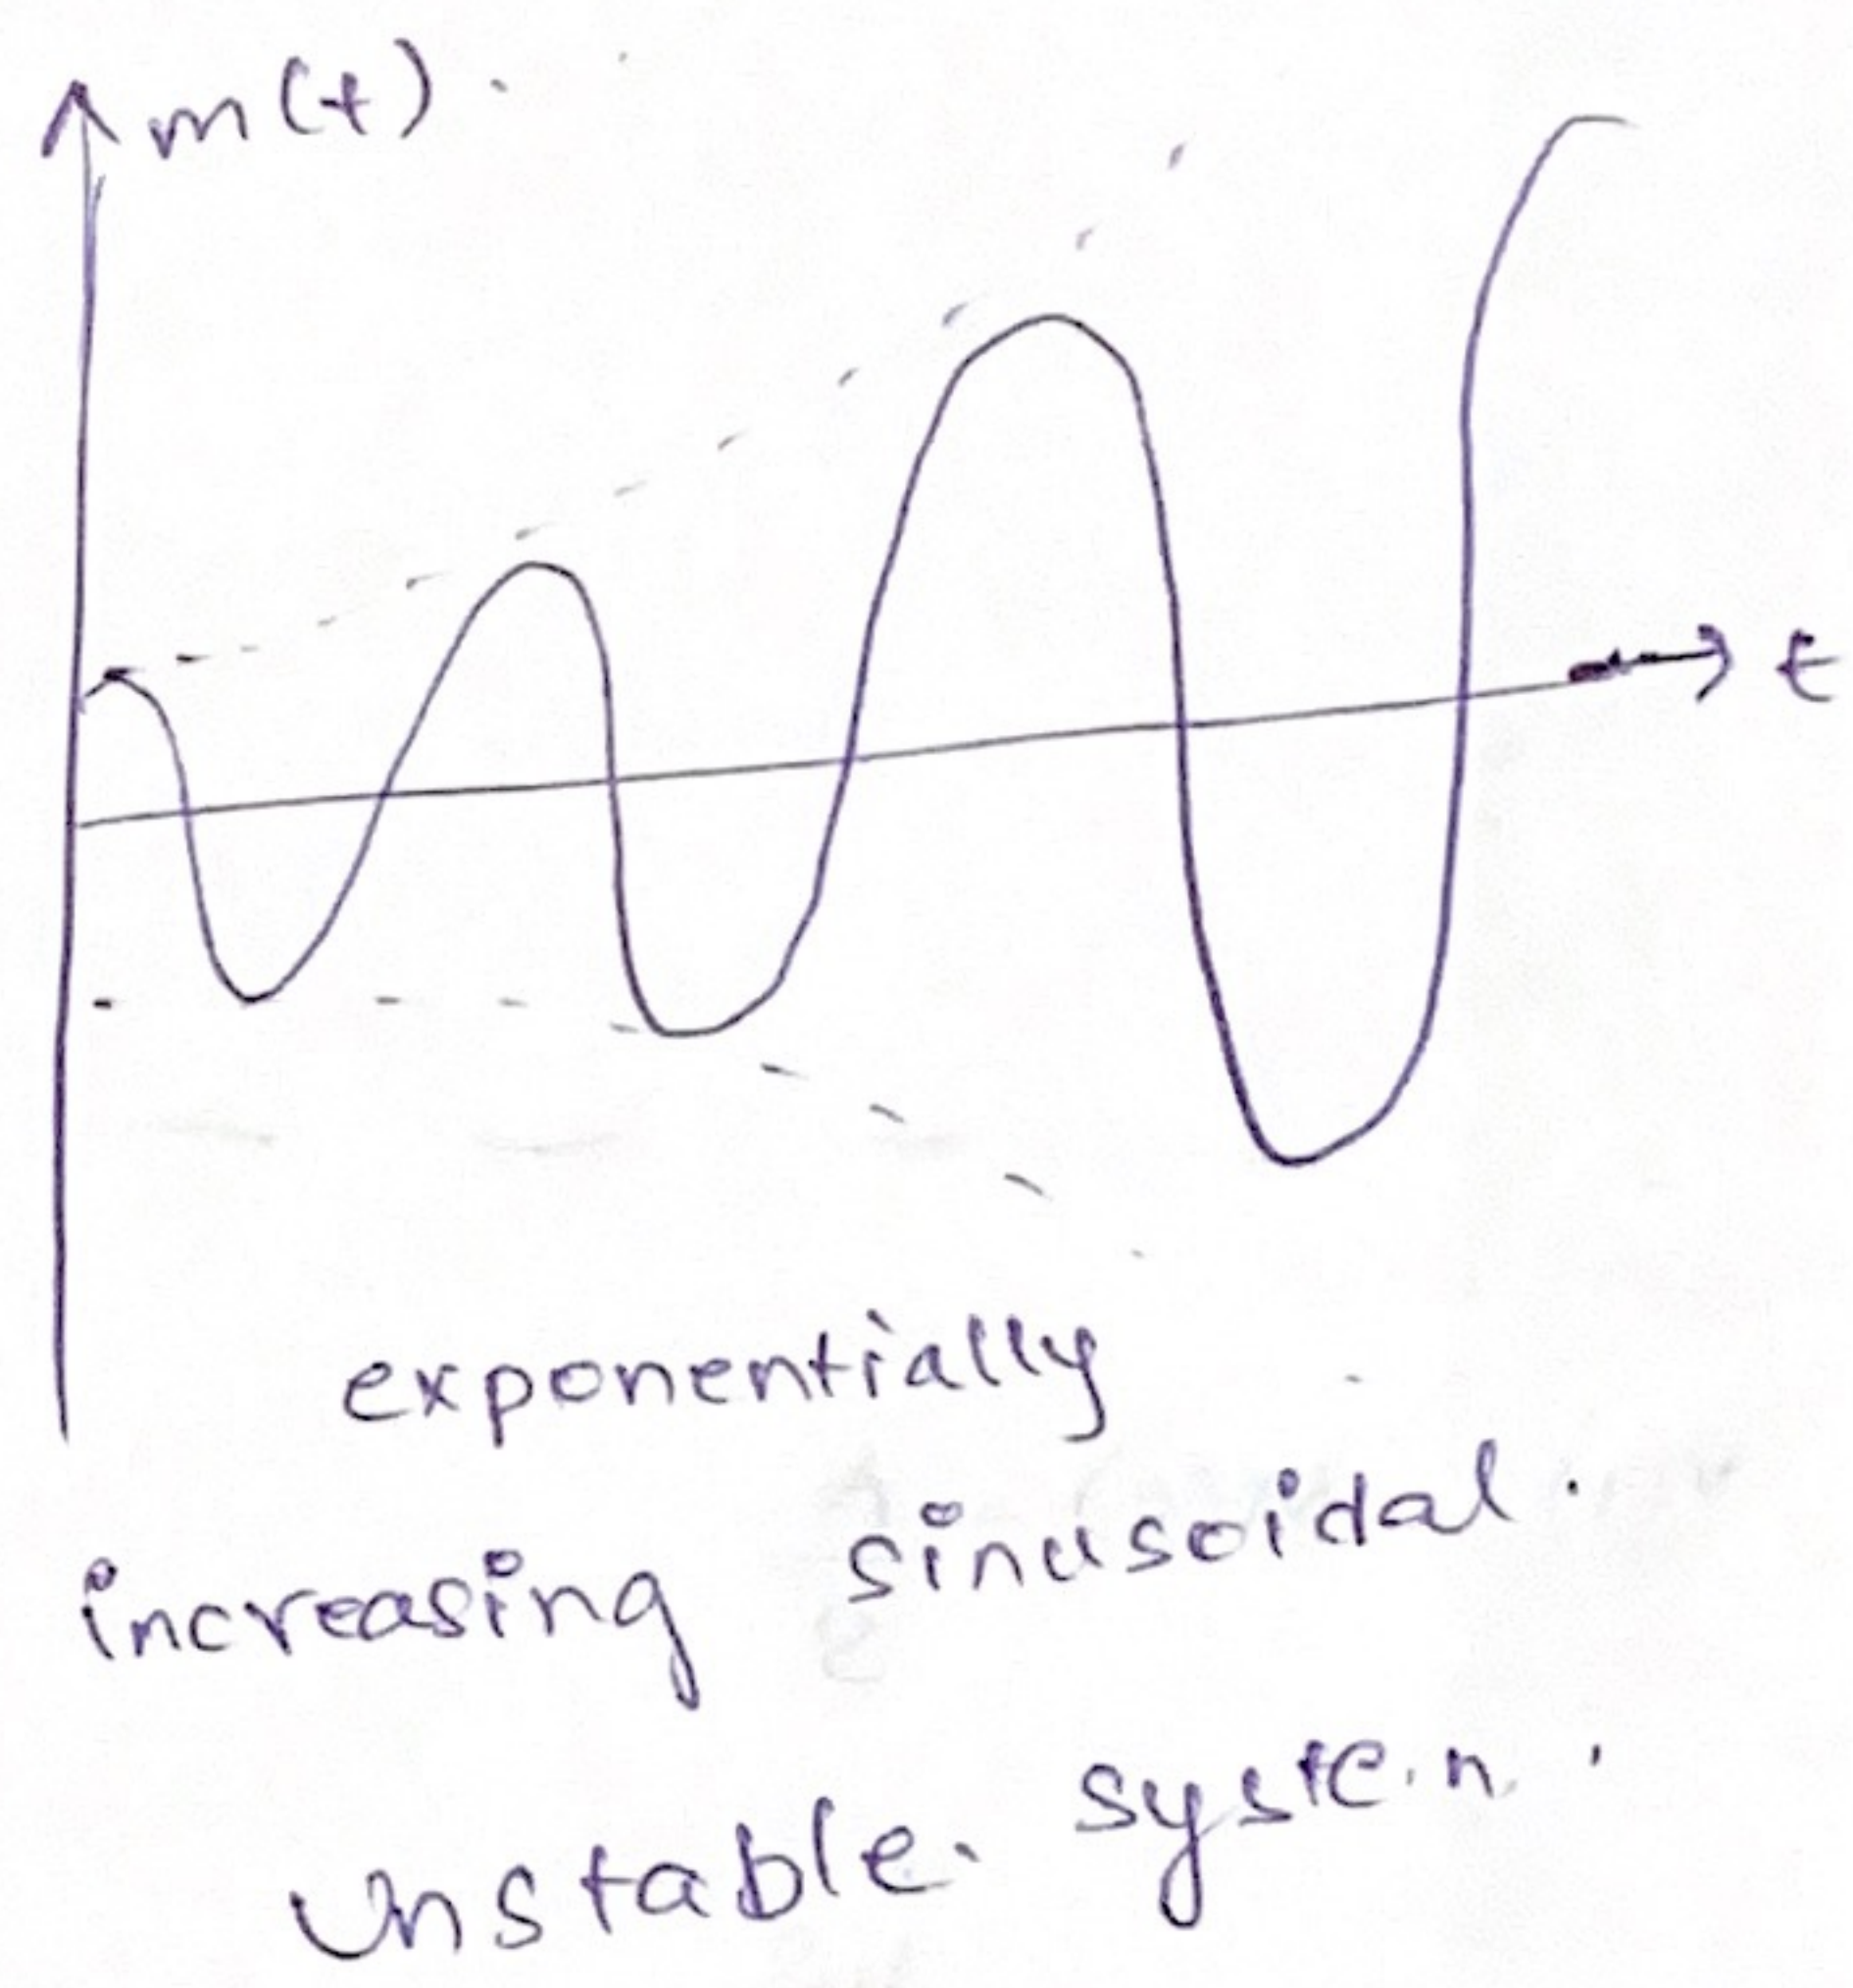 m(t).
t
exponentially
increasing sinusoidal.
Unstable. system.